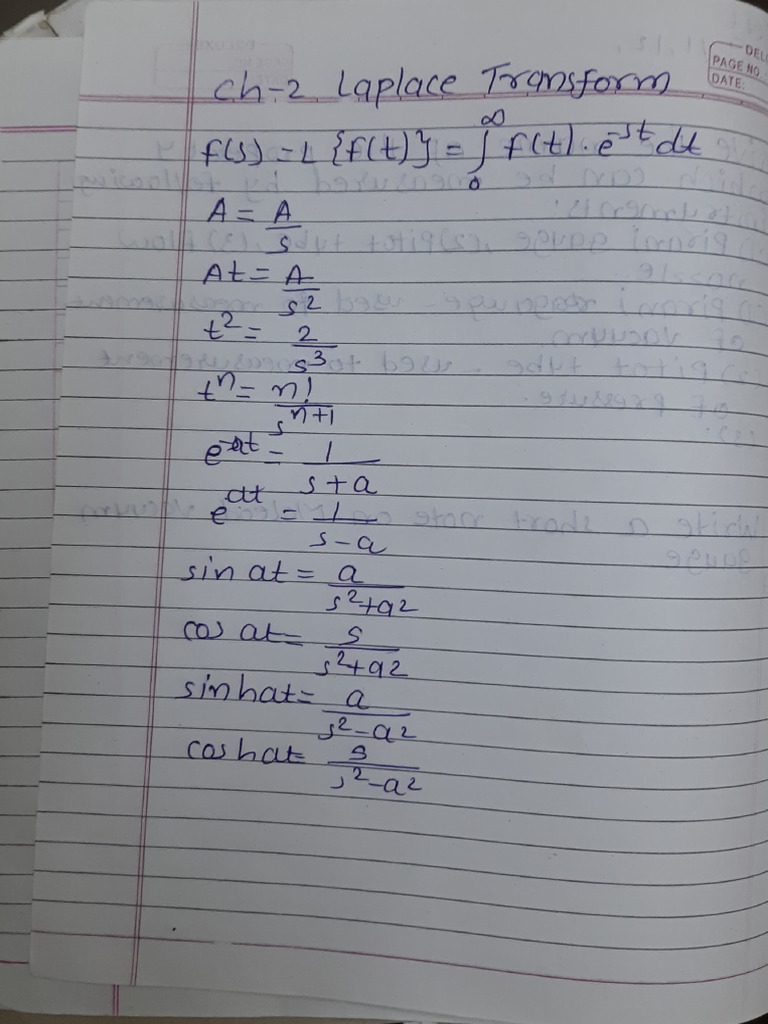 DEL
PAGE NO.
DATE:
Ch-2 Laplace Transform
f(s) = L {f(t)} = ∫₀^∞ f(t) · e^-st dt
A = A/s
At = A/s²
t² = 2/s³
tⁿ = n!/s^n+1
e^-at = 1/s+a
e^at = 1/s-a
sin at = a/s²+a²
cos at = s/s²+a²
sinhat = a/s²-a²
coshat = s/s²-a²